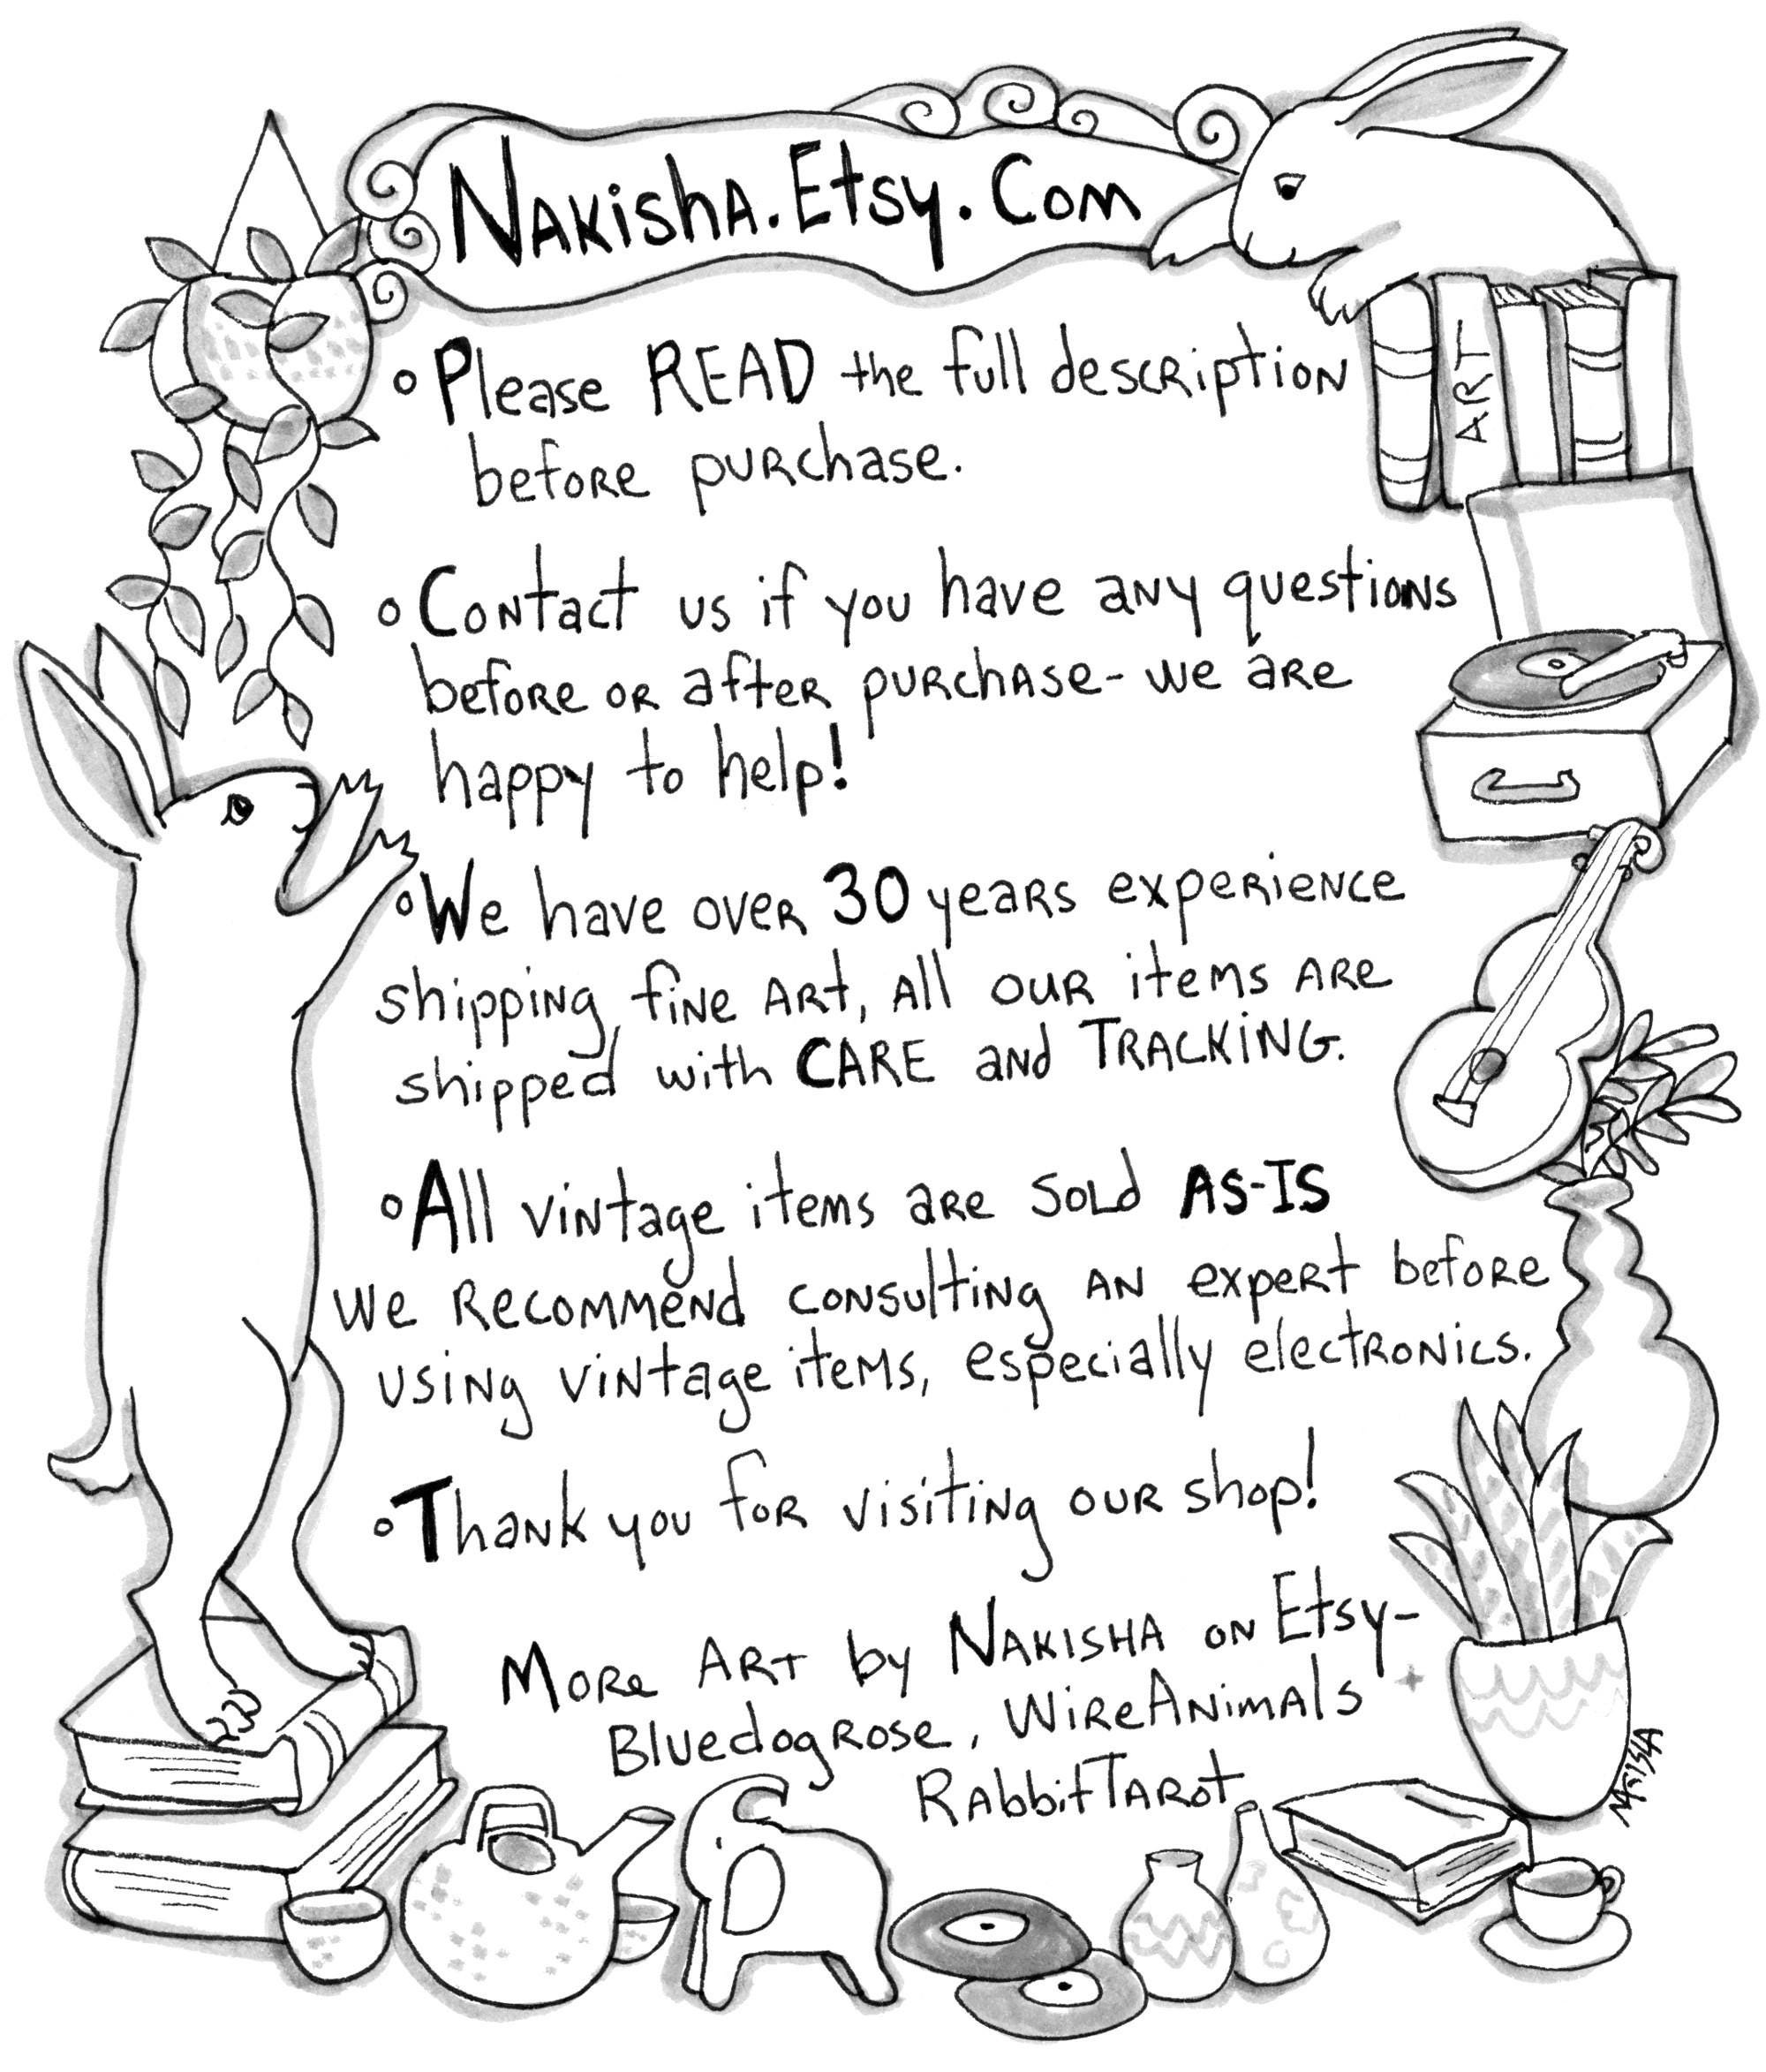 Nakisha.Etsy.Com
ART
Please READ the full description
before purchase.
Contact us if you have any questions
before or after purchase- we are
happy to help!
We have over 30 years experience
shipping fine Art, All our items are
shipped with CARE and TRACKING.
All vintage items are sold AS-IS
We Recommend consulting an expert before
using vintage items, especially electronics.
Thank you for visiting our shop!
More Art by Nakisha on Etsy-
BluedogRose, WireAnimals
RabbitTarot
Nakisha